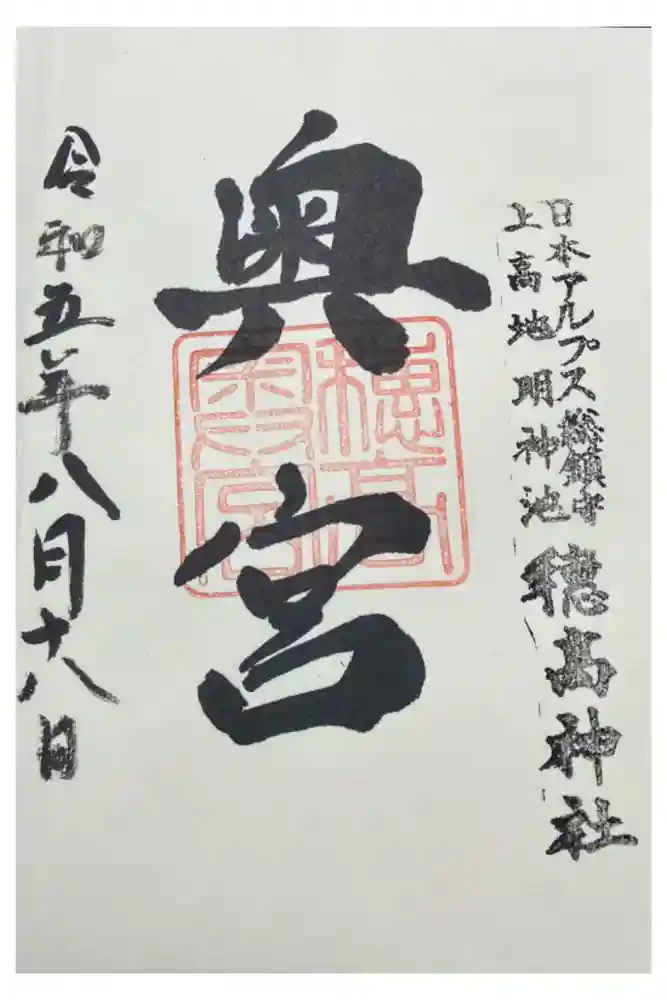 日本アルプス総鎮守
上高地明神池
穂高神社
奥宮
穂高
奥宮
令和五年八月十八日